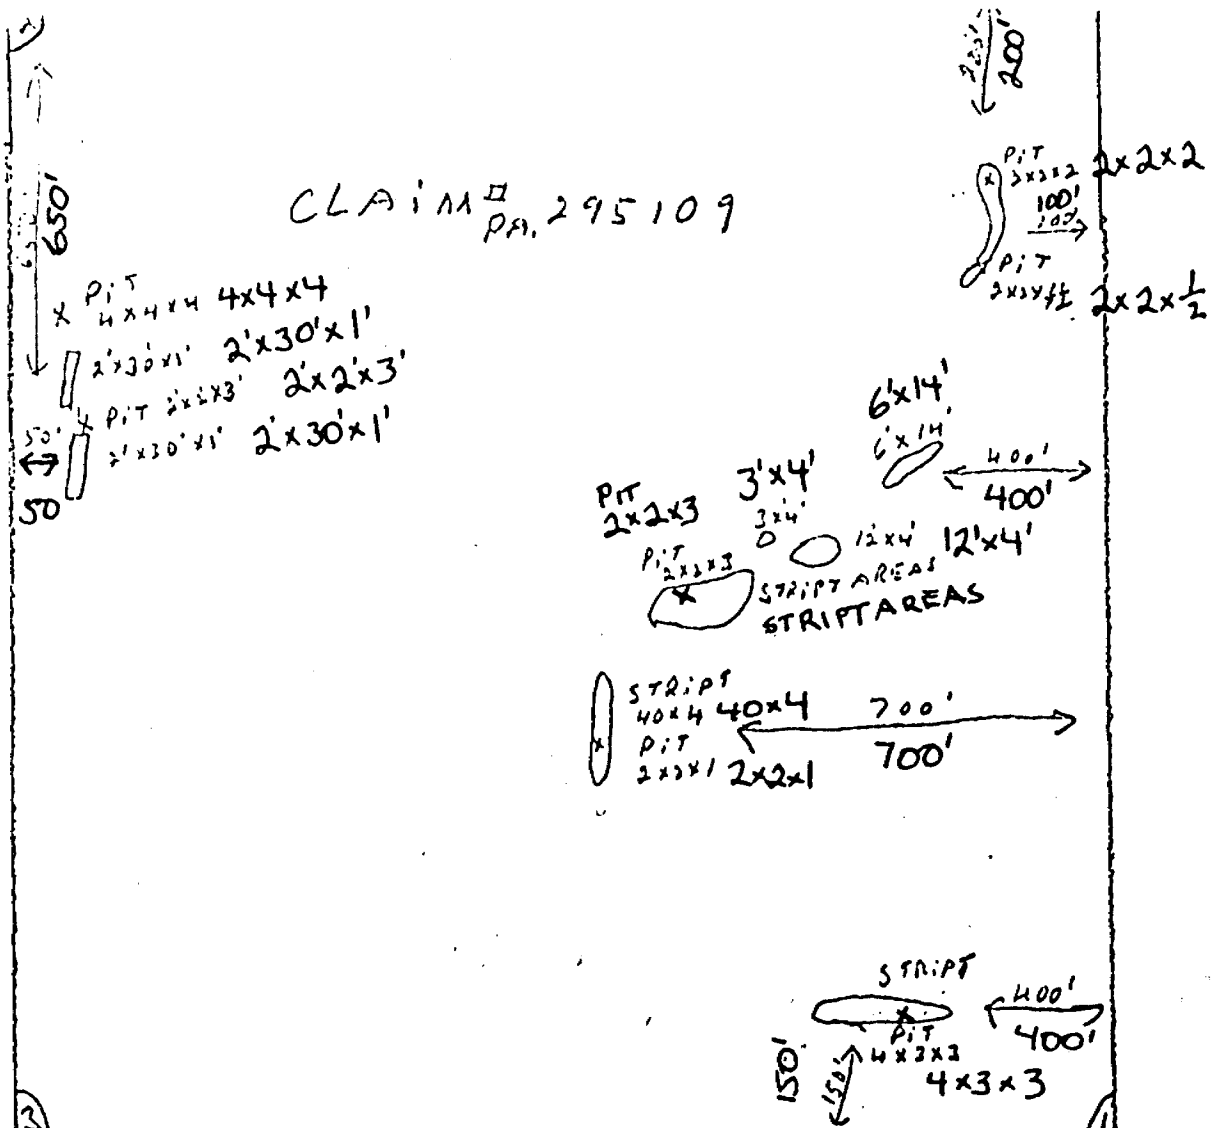 2
225'
200'
650'
650'
CLAIM #
PA. 295109
PIT
2x2x2 2x2x2
100'
100'
PIT
2x2x½ 2x2x½
PIT
4x4x4 4x4x4
2'x30'x1' 2'x30'x1'
PIT 2'x2'x3' 2'x2'x3'
2'x30'x1' 2'x30'x1'
50'
50
6'x14'
6'x14'
400'
400'
PIT
2x2x3
3'x4'
3'x4'
12'x4' 12'x4'
PIT
2x2x3
STRIPT AREAS
STRIPT AREAS
STRIPT
40x4 40x4
PIT
2x2x1 2x2x1
700'
700'
STRIPT
400'
400'
PIT
4x3x3
4x3x3
150'
150'
3
1